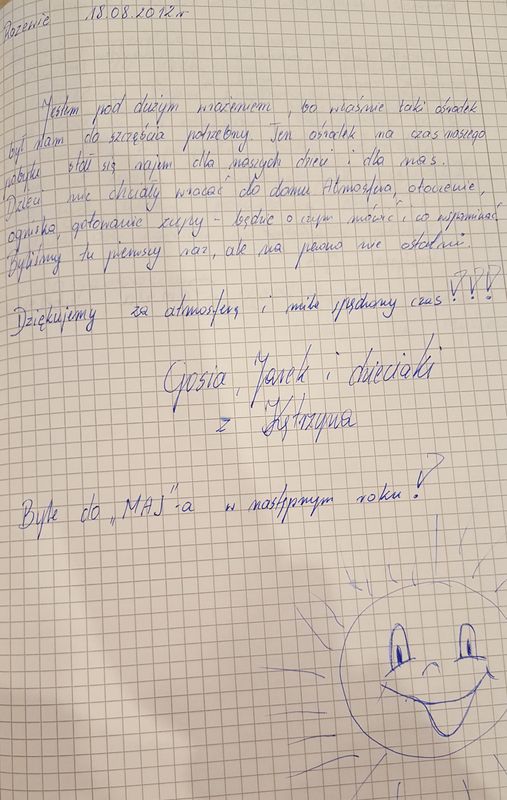 Rożenie 18.08.2012 r
Jestem pod dużym wrażeniem, bo właśnie taki ośrodek
był nam do szczęścia potrzebny. Ten ośrodek na czas naszego
pobytu stał się rajem dla naszych dzieci i dla nas.
Dzieci nie chciały wracać do domu. Atmosfera, otoczenie,
ogniska, gotowanie zupy - będzie o czym mówić i co wspominać.
Byliśmy tu pierwszy raz, ale na pewno nie ostatni.
Dziękujemy za atmosferę i mile spędzony czas!!!
Gosia, Jarek i dzieciaki
z Kętrzyna
Byle do "MAJ"-a w następnym roku!